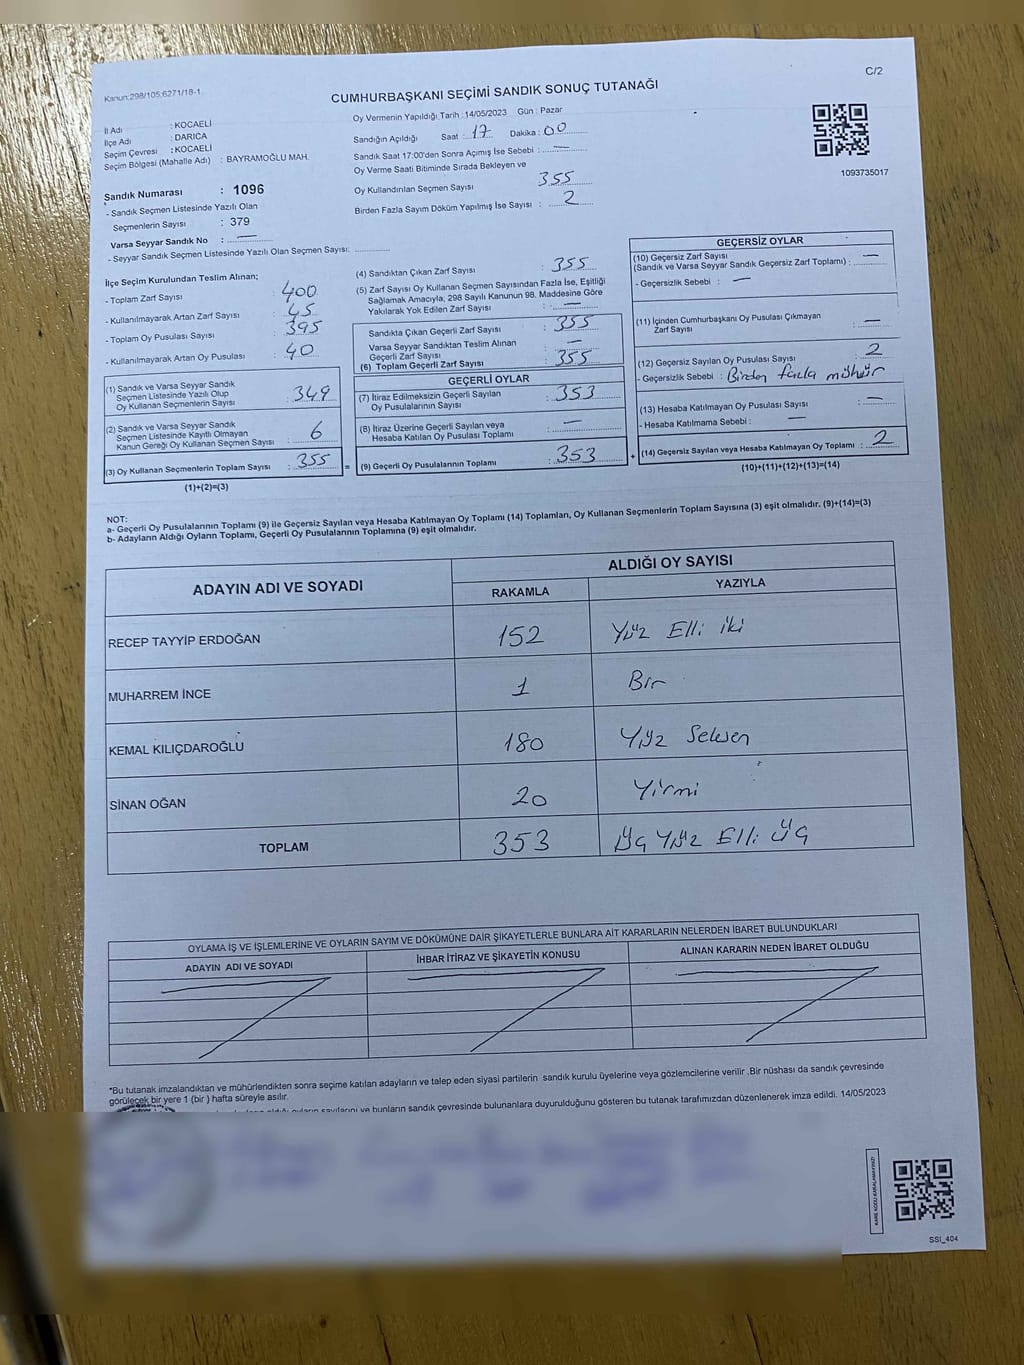 Kanun:298/105;6271/18-1
C/2
CUMHURBAŞKANI SEÇİMİ SANDIK SONUÇ TUTANAĞI
İl Adı : KOCAELİ
İlçe Adı : DARICA
Seçim Çevresi : KOCAELİ
Seçim Bölgesi (Mahalle Adı) : BAYRAMOĞLU MAH.
Sandık Numarası : 1096
- Sandık Seçmen Listesinde Yazılı Olan
Seçmenlerin Sayısı : 379
Varsa Seyyar Sandık No : —
- Seyyar Sandık Seçmen Listesinde Yazılı Olan Seçmen Sayısı: ..............
Oy Vermenin Yapıldığı Tarih :14/05/2023 Gün : Pazar
Sandığın Açıldığı Saat : 17 Dakika : 00
Sandık Saat 17:00'den Sonra Açımış İse Sebebi : —
Oy Verme Saati Bitiminde Sırada Bekleyen ve
Oy Kullandırılan Seçmen Sayısı 355
Birden Fazla Sayım Döküm Yapılmış İse Sayısı : 2
1093735017
İlçe Seçim Kurulundan Teslim Alınan;
- Toplam Zarf Sayısı : 400
- Kullanılmayarak Artan Zarf Sayısı : 45
- Toplam Oy Pusulası Sayısı : 395
- Kullanılmayarak Artan Oy Pusulası : 40
(1) Sandık ve Varsa Seyyar Sandık
Seçmen Listesinde Yazılı Olup
Oy Kullanan Seçmenlerin Sayısı : 349
(2) Sandık ve Varsa Seyyar Sandık
Seçmen Listesinde Kayıtlı Olmayan
Kanun Gereği Oy Kullanan Seçmen Sayısı : 6
(3) Oy Kullanan Seçmenlerin Toplam Sayısı : 355
=
(1)+(2)=(3)
(4) Sandıktan Çıkan Zarf Sayısı : 355
(5) Zarf Sayısı Oy Kullanan Seçmen Sayısından Fazla İse, Eşitliği
Sağlamak Amacıyla; 298 Sayılı Kanunun 98. Maddesine Göre
Yakılarak Yok Edilen Zarf Sayısı : —
Sandıkta Çıkan Geçerli Zarf Sayısı : 355
Varsa Seyyar Sandıktan Teslim Alınan
Geçerli Zarf Sayısı : —
(6) Toplam Geçerli Zarf Sayısı : 355
GEÇERLİ OYLAR
(7) İtiraz Edilmeksizin Geçerli Sayılan
Oy Pusulalarının Sayısı : 353
(8) İtiraz Üzerine Geçerli Sayılan veya
Hesaba Katılan Oy Pusulası Toplamı : —
(9) Geçerli Oy Pusulalarının Toplamı : 353
+
GEÇERSİZ OYLAR
(10) Geçersiz Zarf Sayısı
(Sandık ve Varsa Seyyar Sandık Geçersiz Zarf Toplamı) : —
- Geçersizlik Sebebi : —
(11) İçinden Cumhurbaşkanı Oy Pusulası Çıkmayan
Zarf Sayısı : —
(12) Geçersiz Sayılan Oy Pusulası Sayısı : 2
- Geçersizlik Sebebi : Birden fazla mühür
(13) Hesaba Katılmayan Oy Pusulası Sayısı : —
- Hesaba Katılmama Sebebi : —
(14) Geçersiz Sayılan veya Hesaba Katılmayan Oy Toplamı : 2
(10)+(11)+(12)+(13)=(14)
NOT:
a- Geçerli Oy Pusulalarının Toplamı (9) ile Geçersiz Sayılan veya Hesaba Katılmayan Oy Toplamı (14) Toplamları, Oy Kullanan Seçmenlerin Toplam Sayısına (3) eşit olmalıdır. (9)+(14)=(3)
b- Adayların Aldığı Oyların Toplamı, Geçerli Oy Pusulalarının Toplamına (9) eşit olmalıdır.
ADAYIN ADI VE SOYADI
ALDIĞI OY SAYISI
RAKAMLA YAZIYLA
RECEP TAYYİP ERDOĞAN 152 Yüz Elli iki
MUHARREM İNCE 1 Bir
KEMAL KILIÇDAROĞLU 180 Yüz Seksen
SİNAN OĞAN 20 Yirmi
TOPLAM 353 Üç Yüz Elli üç
OYLAMA İŞ VE İŞLEMLERİNE VE OYLARIN SAYIM VE DÖKÜMÜNE DAİR ŞİKAYETLERLE BUNLARA AİT KARARLARIN NELERDEN İBARET BULUNDUKLARI
ADAYIN ADI VE SOYADI İHBAR İTİRAZ VE ŞİKAYETİN KONUSU ALINAN KARARIN NEDEN İBARET OLDUĞU
*Bu tutanak imzalandıktan ve mühürlendikten sonra seçime katılan adayların ve talep eden siyasi partilerin sandık kurulu üyelerine veya gözlemcilerine verilir .Bir nüshası da sandık çevresinde
görülecek bir yere 1 (bir ) hafta süreyle asılır.
oyların sayılarını ve bunların sandık çevresinde bulunanlara duyurulduğunu gösteren bu tutanak tarafımızdan düzenlenerek imza edildi. 14/05/2023
KARE KODU KARALAMAYINIZ!
SSİ_404